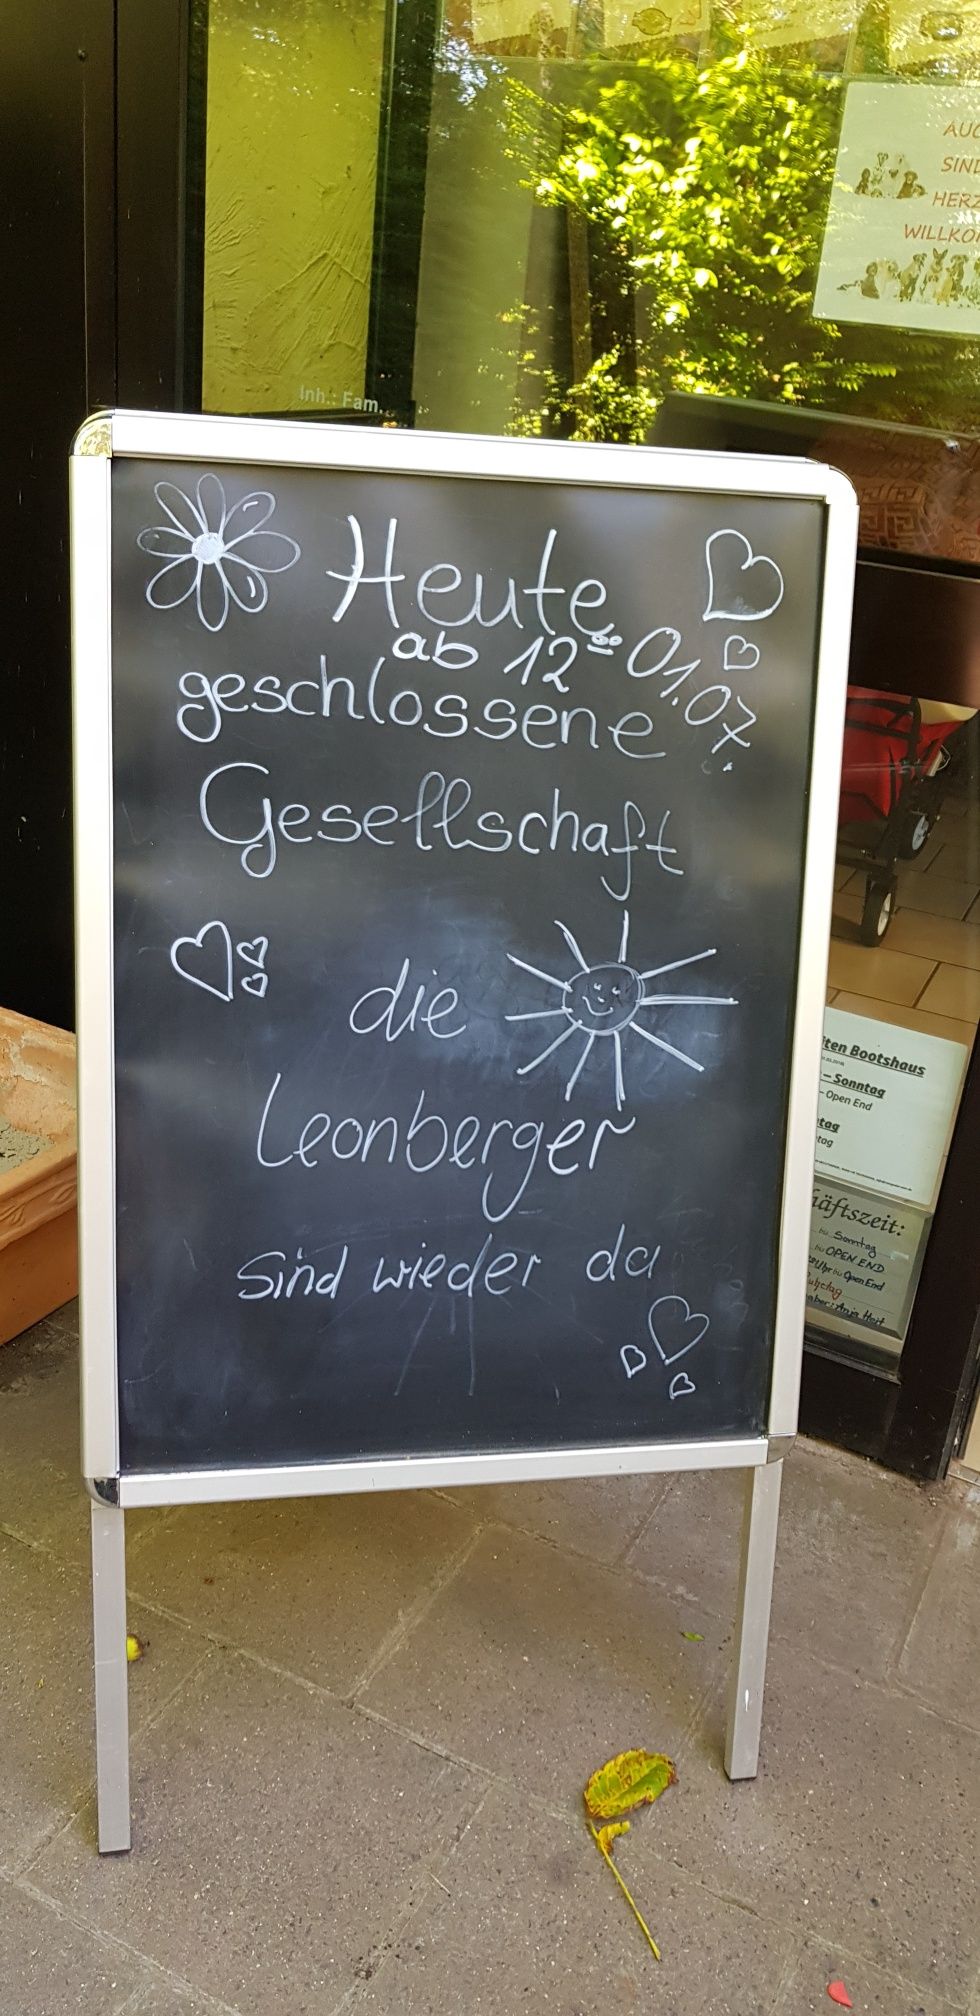 AUC
SIND
HERZ
WILLKOM
Inh.: Fam.
Heute
ab 12⁰⁰ 01.07.
geschlossene
Gesellschaft
die
Leonberger
sind wieder da
ten Bootshaus
– Sonntag
– Open End
tag
tag
häftszeit:
bis Sonntag
bis OPEN END
Uhr bis Open End
uhetag
aber: Anja Hort